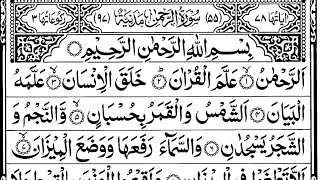 اٰيَاتُهَا ۷۸ (۵۵) سُوْرَةُ الرَّحْمٰنِ مَدَنِيَّةٌ (۹۷) رُكُوْعَاتُهَا ۳
بِسْمِ اللّٰهِ الرَّحْمٰنِ الرَّحِيْمِ
اَلرَّحْمٰنُ ۙ۝۱ عَلَّمَ الْقُرْاٰنَ ؕ۝۲ خَلَقَ الْاِنْسَانَ ۙ۝۳ عَلَّمَهُ
الْبَيَانَ ۝۴ اَلشَّمْسُ وَالْقَمَرُ بِحُسْبَانٍ ۪۝۵ وَّالنَّجْمُ وَ
الشَّجَرُ يَسْجُدٰنِ ۝۶ وَالسَّمَآءَ رَفَعَهَا وَوَضَعَ الْمِيْزَانَ ۙ۝۷